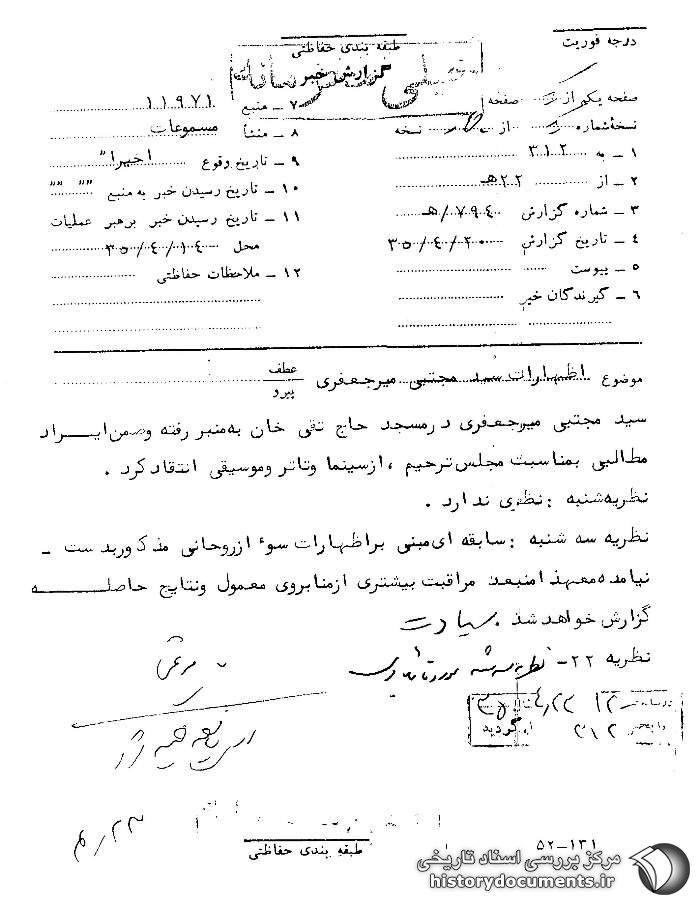 درجه فوریت
طبقه بندی حفاظتی
خیلی محرمانه
گزارش خبر
صفحه یکم از صفحه
نسخهٔ شماره از نسخه
۱ ـ به ۳۱۲
۲ ـ از ۲۲هـ
۳ ـ شماره گزارش ۷۹۴۰/هـ
۴ ـ تاریخ گزارش ۳۵/۴/۲۰
۵ ـ پیوست
۶ ـ گیرندگان خبر
۷ ـ منبع ۱۱۹۷۱
۸ ـ منشأ مسموعات
۹ ـ تاریخ وقوع اخیرا"
۱۰ ـ تاریخ رسیدن خبر به منبع "" ""
۱۱ ـ تاریخ رسیدن خبر برهبر عملیات
محل ۳۵/۴/۱۴
۱۲ ـ ملاحظات حفاظتی
موضوع اظهارات سید مجتبی میرجعفری
عطف
پیرو
سید مجتبی میرجعفری درمسجد حاج تقی خان به‌منبر رفته وضمن‌ایراد
مطالبی بمناسبت مجلس‌ترحیم ، ازسینما وتاتر وموسیقی انتقادکرد .
نظریه‌شنبه : نظری ندارد .
نظریه سه شنبه : سابقه ای‌مبنی براظهارات سوء ازروحانی مذکوربدست ـ
نیامده‌معهذا منبعد مراقبت بیشتری ازمنابروی معمول ونتایج حاصله
گزارش خواهدشد . سیادت
نظریه ۲۲ـ نظریه سه شنبه مورد تائید
گردید
۳۱۲
۵۲-۱۳۱
طبقه بندی حفاظتی
مرکز بررسی اسناد تاریخی
historydocuments.ir